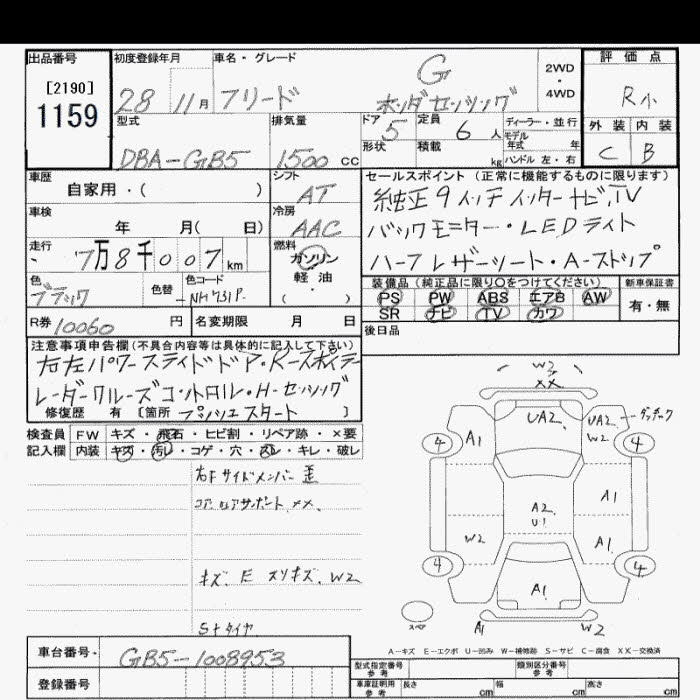 出品番号
[2190]
1159
初度登録年月
28 11月
車名・グレード
フリード
G
ホンダセンシング
2WD
・
4WD
評価点
R小
外装 内装
C B
型式
DBA-GB5
排気量
1500 CC
ドア 5
形状
定員 6 人
積載 kg
ディーラー・並行
モデル
年式 年
ハンドル 左・右
車歴
自家用・( )
シフト
AT
車検
年 月( 日)
冷房
AAC
走行
7万8千007km
燃料
ガソリン
軽油
・
( )
色
ブラック
色替
色コード
NH731P
R券 10060 円
名変期限 月 日
セールスポイント (正常に機能するものに限ります)
純正9インチインターナビ,TV
バックモニター・LEDライト
ハーフレザーシート・A-ストップ
装備品 (純正品に限り○をつけてください)
PS PW ABS エアB AW
SR ナビ TV カワ
新車保証書
有・無
後日品
注意事項申告欄(不具合内容等は具体的に記入して下さい)
右左パワースライドドア・Rースポイラー
レーダークルーズコントロル・H-センシング
修復歴 有 [箇所 プッシュスタート ]
検査員
記入欄
FW キズ・飛石・ヒビ割・リペア跡・×要
内装 キズ・汚レ・コゲ・穴・スレ・キレ・破レ
右Fサイドメンバー 歪
コアロアサポート ××
キズ、E スリキズ、W2
Sナタイヤ
W2
××
UA2 UA2 W2
A1
4 4
A2
U1
A1
W2 A1
4 4
A1
A1 W2
スペア
A-キズ E-エクボ U-凹み W-補修跡 S-サビ C-腐食 XX-交換済
車台番号・
GB5-1008953
登録番号
型式指定番号
参考
類別区分番号
参考
車庫証明用
参考
長さ cm 幅 cm 高さ cm